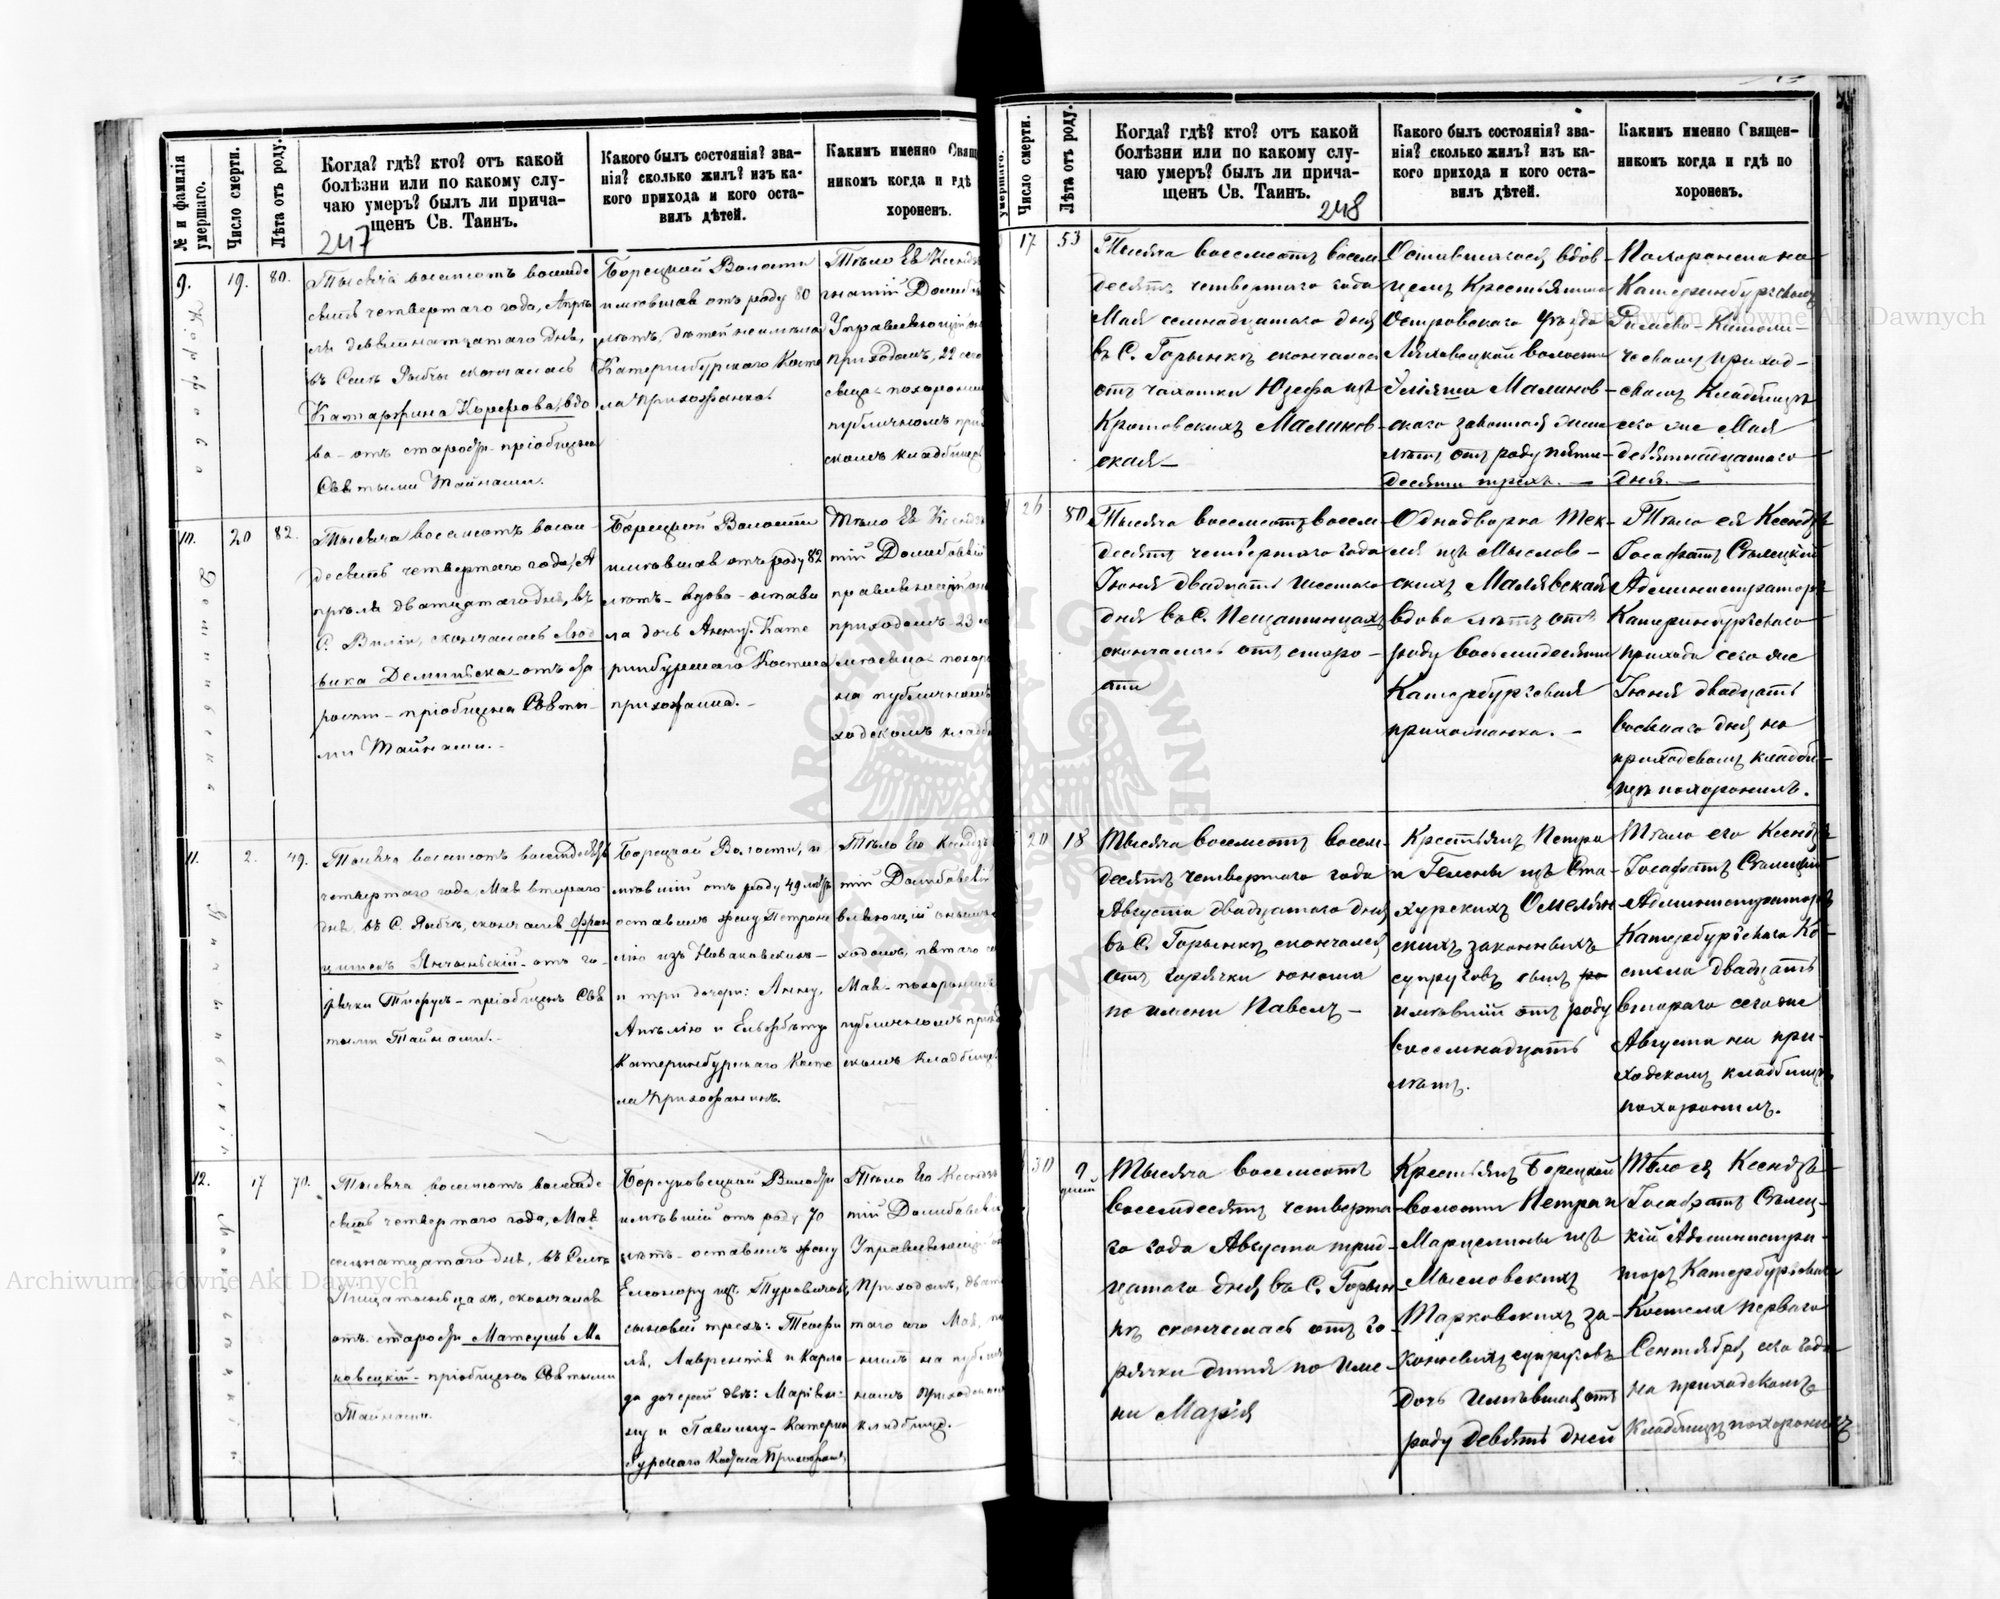 № и фамилія умершаго.
Число смерти.
Лѣта отъ роду.
Когда? гдѣ? кто? отъ какой
болѣзни или по какому слу-
чаю умеръ? былъ ли прича-
щенъ Св. Таинъ.
247
Какого былъ состоянія? зва-
нія? сколько жилъ? изъ ка-
кого прихода и кого оста-
вилъ дѣтей.
Какимъ именно Свящ
никомъ когда и гдѣ
хороненъ.
9.
19.
80.
Тысяча восемсотъ восемде
сятъ четвертаго года, Апрѣ
ля девятнатцатаго дня,
въ Селѣ Рыбчѣ скончалась
Катаржина Корфова, вдо
ва - отъ старости - пріобщена
Святыми Тайнами.
Борецкой Волости
имѣвшая отъ роду 80
лѣтъ, дѣтей неимѣла
Катеринбургскаго Косте
ла прихожанка.
Тѣло Ея Ксендзъ
гнатій Домбов
Управляющій
приходомъ, 22 сего
сяца похоронил
публичномъ прих
скомъ кладбищѣ
10.
20
82.
Тысяча восемсотъ восем
десятъ четвертаго года, А
прѣля дватцатаго дня, въ
С. Виліи, скончалась Люд
вика Демпинска - отъ ста
рости - пріобщена Святы-
ми Тайнами.-
Борецкой Волости
имѣвшая отъ роду 82
лѣтъ - вдова - остави
ла дочь Анну. Кате
ринбургскаго Костела
прихожанка.-
Тѣло Ея Ксендзъ
тій Домбовскій
правляющій
приходомъ 23
мѣсяца похор
на публичномъ
ходскомъ кладб
11.
2.
49.
Тысяча восемсотъ восемдесятъ
четвертаго года, Мая втораго
дня, въ С. Рыбчѣ, скончался Фран
цишекъ Янчинскій - отъ го-
рячки Тифусъ - пріобщенъ Свя
тыми Тайнами.-
Борецкой Волости, и
мѣвшій отъ роду 49 лѣтъ
оставилъ жену Петроне
лю изъ Новаковскихъ -
и три дочери: Анну,
Анѣлію и Ельжбѣту
Катеринбургскаго Косте
ла прихожанинъ.
Тѣло Его Ксендзъ
тій Домбовскій
вляющій онымъ
ходомъ, пятаго
Мая - похоронилъ
публичномъ прихо
скомъ кладбищѣ
12.
17
70.
Тысяча восемсотъ восемде
сятъ четвертаго года, Мая
семнатцатаго дня, въ Селѣ
Пищатинцахъ, скончался
отъ старости Матеушъ Ма
ковецкій - пріобщенъ Святыми
Тайнами.
имѣвшій отъ роду 70
лѣтъ - оставилъ жену
Елеонору изъ Туровичовъ,
сыновей трехъ: Теофи
ля, Лаврентія и Карла
да дочерей двѣ: Маріян-
ну и Павлину - Катерин
бургскаго Костела Прихожан.
Тѣло Его Ксендзъ
тій Домбовскій
Управляющій
Приходомъ, дват
таго его Мая, по
нилъ на публич
номъ приходском
кладбищѣ.-
умершаго.
Число смерти.
Лѣта отъ роду.
Когда? гдѣ? кто? отъ какой
болѣзни или по какому слу-
чаю умеръ? былъ ли прича-
щенъ Св. Таинъ.
248
Какого былъ состоянія? зва-
нія? сколько жилъ? изъ ка-
кого прихода и кого оста-
вилъ дѣтей.
Какимъ именно Священ-
никомъ когда и гдѣ по
хороненъ.
17
53
Тысяча восемсотъ восем
десятъ четвертаго года
Мая семнадцатаго дня
въ С. Горынкѣ скончалась
отъ чахотки Юзефа изъ
Кротовскихъ Малинов-
ская -
Оставшагося вдов-
цемъ Крестьянина
Островскаго Уѣзда
Ляховецкой волости
Малинов-
скаго законная жена
лѣтъ отъ роду пять-
десятъ трехъ. -
Похоронена на
Катеринбургскомъ
Римско-Католи-
ческомъ приход-
скомъ Кладбищѣ
сего же Мая
девятнадцатаго
дня. -
26
80
Тысяча восемсотъ восем-
десятъ четвертаго года
Іюня двадцать шестаго
дня въ С. Пещатинцахъ
скончалась отъ старо-
сти
Однодворка Тек-
ля изъ Мыслов-
скихъ Малявская
вдова лѣтъ отъ
роду восемидесяти
Катербургская
прихожанка. -
Тѣло ея Ксендзъ
Іосафатъ Сѣлецкій
Администраторъ
Катеринбургскаго
прихода сего же
Іюня двадцать
восьмаго дня на
приходскомъ кладби-
щѣ похоронилъ.
20
18
Тысяча восемсотъ восем-
десятъ четвертаго года
Августа двадцатаго дня
въ С. Горынкѣ скончался
отъ горячки юноша
по имени Павелъ -
Крестьянъ Петра
и Гелены изъ Ста-
хурскихъ Омелян-
скихъ законныхъ
супруговъ сынъ
имѣвшій отъ роду
восемнадцать
лѣтъ.
Тѣло его Ксендзъ
Іосафатъ Сѣлецкій
Администраторъ
Катербургскаго Ко-
стела двадцать
втораго сего же
Августа на при-
ходскомъ кладбищѣ
похоронилъ.
30
9
дней
Тысяча восемсотъ
восемдесятъ четверта-
го года Августа трид-
цатаго дня въ С. Горын-
кѣ скончалась отъ го-
рячки дитя по име-
ни Марія
Крестьянъ Борецкой
волости Петра и
Марцелины изъ
Мысловскихъ
Тарковскихъ за-
конныхъ супруговъ
дочь имѣвшая отъ
роду девять дней
Тѣло ея Ксендзъ
Іосафатъ Сѣлец-
кій Администра-
торъ Катербургскаго
Костела перваго
Сентября сего года
на приходскомъ
кладбищѣ похоронилъ
Archiwum Główne Akt Dawnych
Archiwum Główne Akt Dawnych
ARCHIWUM GŁÓWNE AKT DAWNYCH